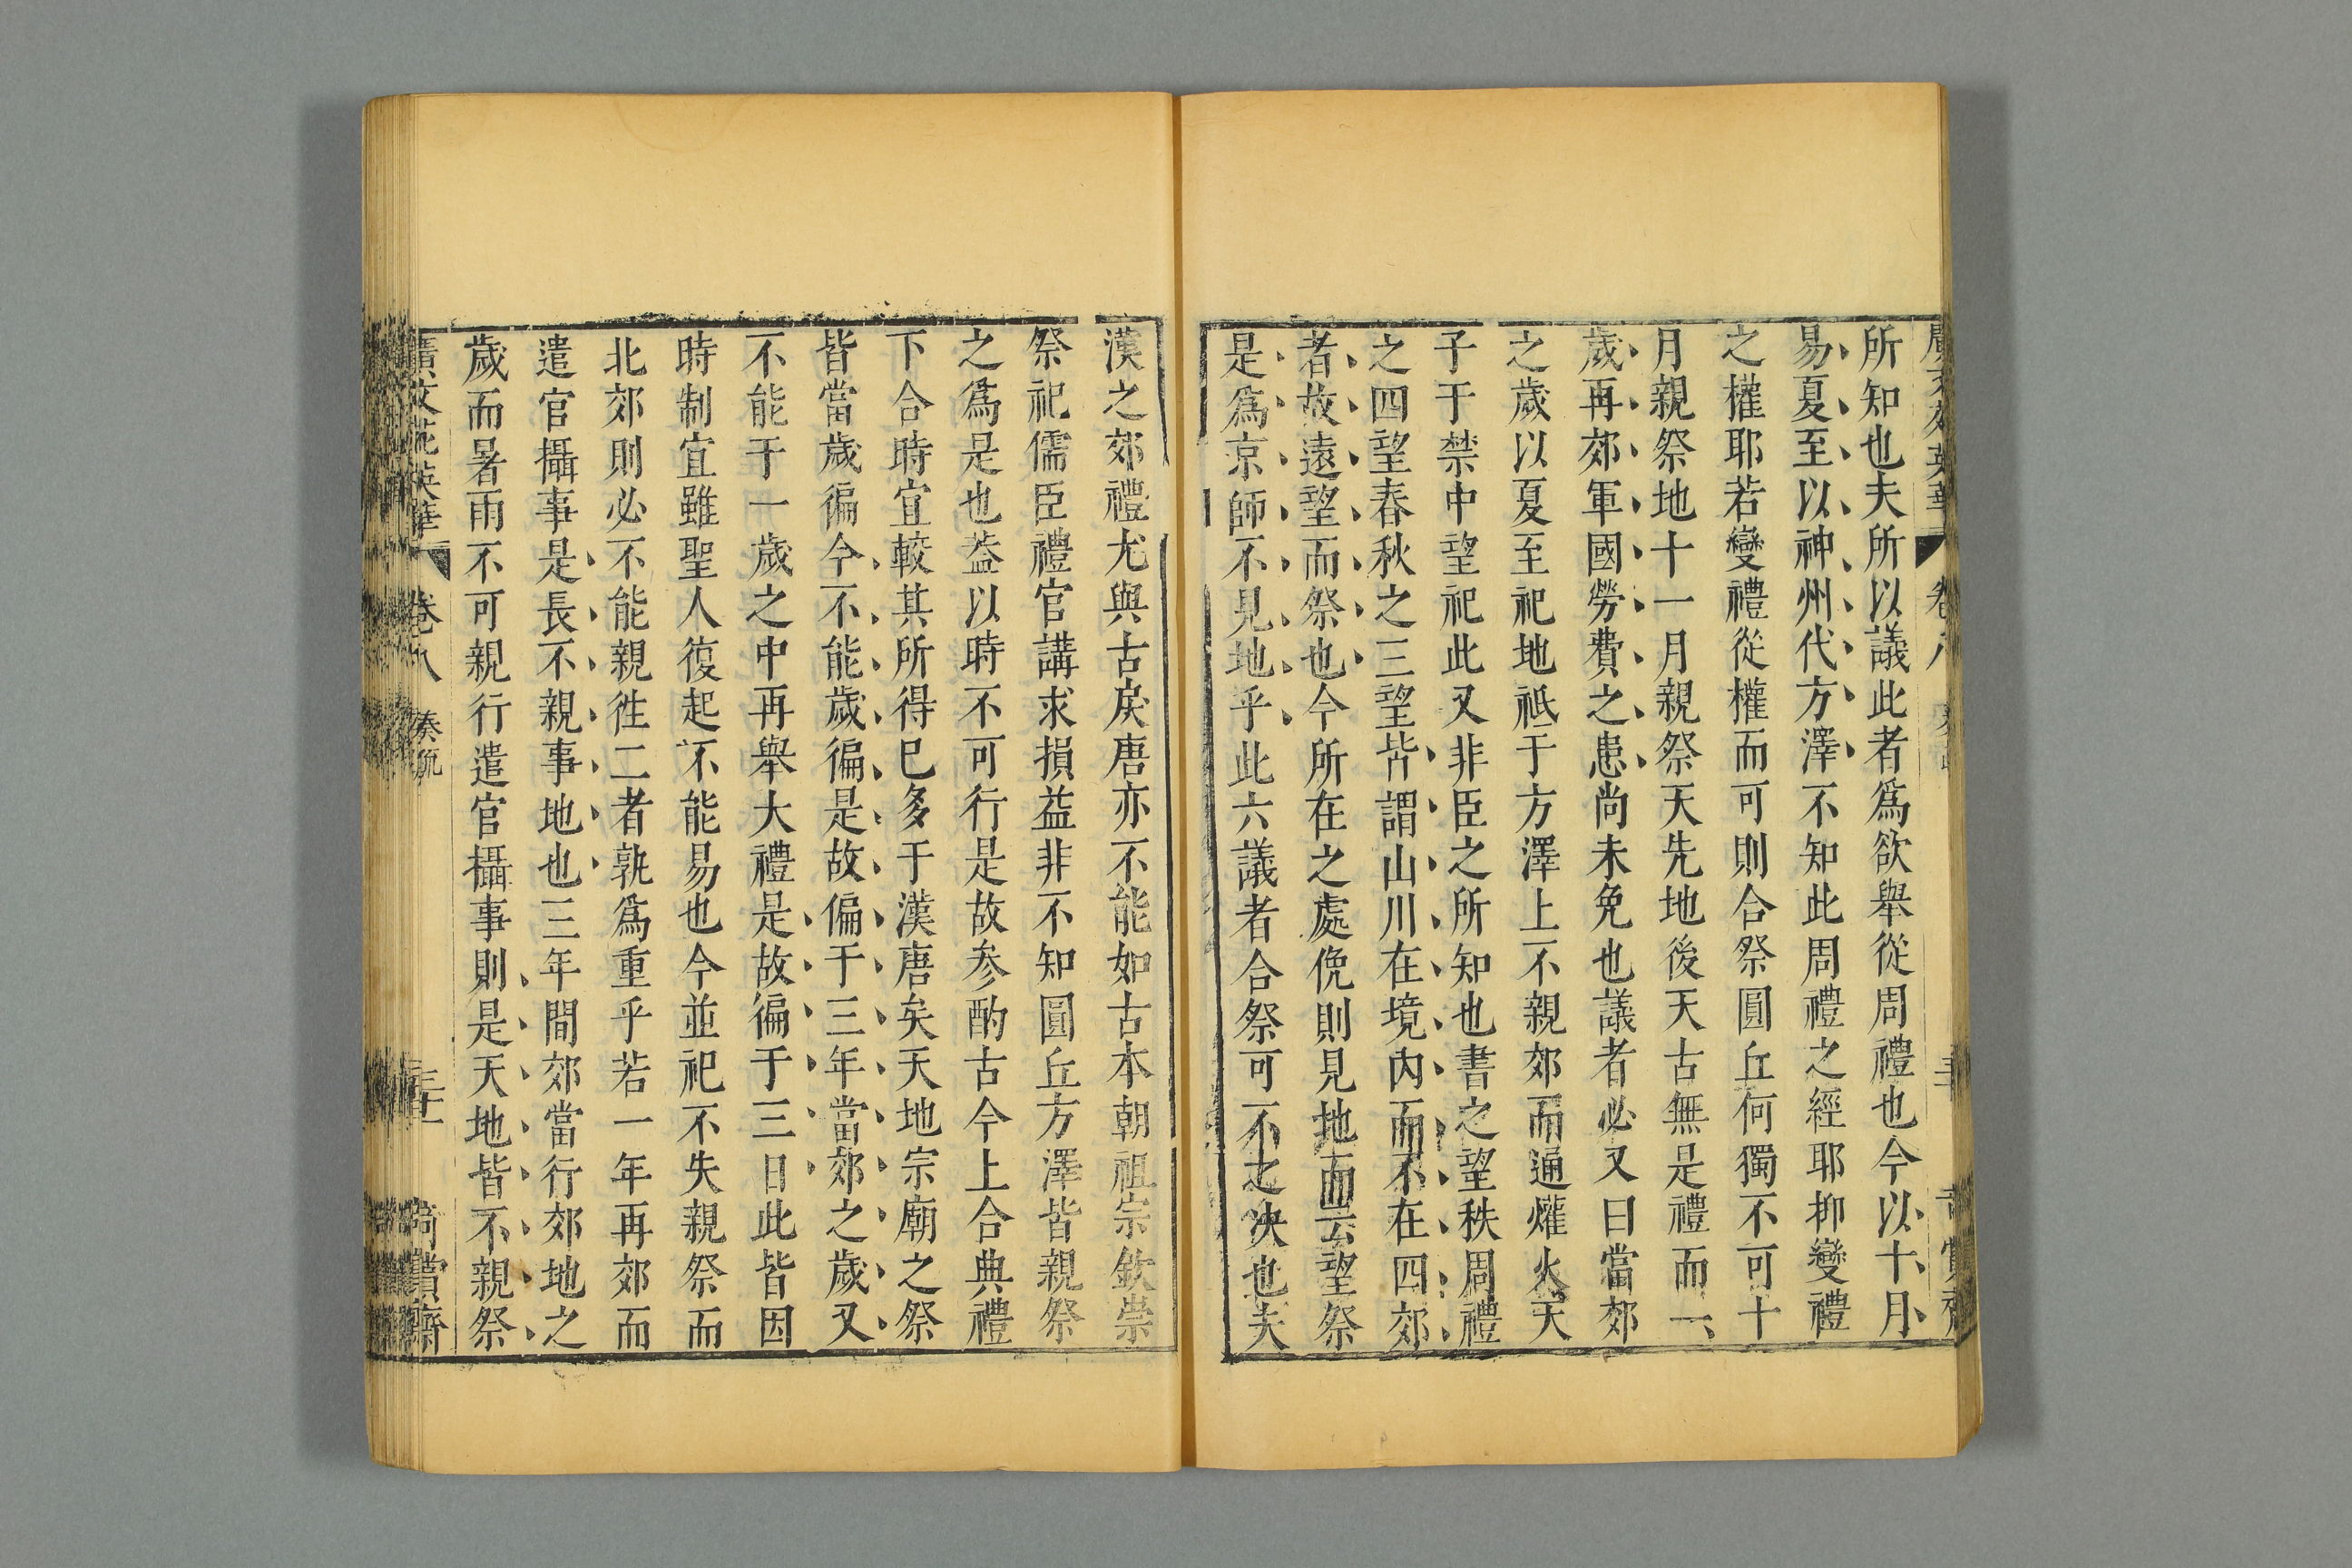 廣文苑英華 卷八
所知也夫所以議此者爲欲舉從周禮也今以十月
易夏至以神州代方澤不知此周禮之經耶抑變禮
之權耶若變禮從權而可則合祭圓丘何獨不可十
月親祭地十一月親祭天先地後天古無是禮而一
歲再郊軍國勞費之患尚未免也議者必又曰當郊
之歲以夏至祀地祇于方澤上不親郊而通爟火天
子于禁中望祀此又非臣之所知也書之望秩周禮
之四望春秋之三望皆謂山川在境內而不在四郊
者故遠望而祭也今所在之處俛則見地而云望祭
是爲京師不見地乎此六議者合祭可不之决也夫
漢之郊禮尤與古戾唐亦不能如古本朝祖宗欽崇
祭祀儒臣禮官講求損益非不知圓丘方澤皆親祭
之爲是也葢以時不可行是故參酌古今上合典禮
下合時宜較其所得已多于漢唐矣天地宗廟之祭
皆當歲徧今不能歲徧是故偏于三年當郊之歲又
不能于一歲之中再舉大禮是故徧于三日此皆因
時制宜雖聖人復起不能易也今並祀不失親祭而
北郊則必不能親徃二者孰爲重乎若一年再郊而
遣官攝事是長不親事地也三年間郊當行郊地之
歲而暑雨不可親行遣官攝事則是天地皆不親祭
廣文苑英華 卷八 奏疏 三十一 賞齋